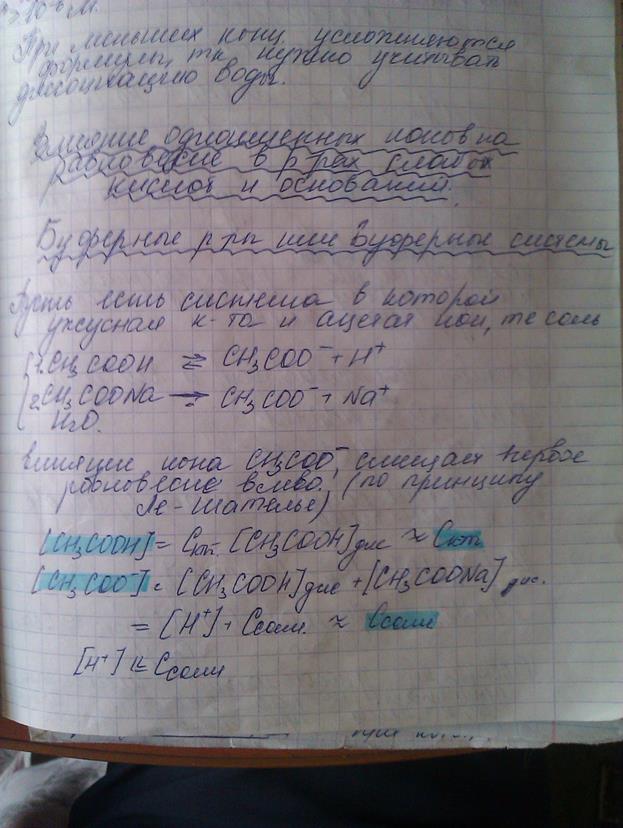 При меньших конц. усложняются
формулы, тк нужно учитыват
диссоциацию воды.
Влияние одноименных ионов на
равновесие в р-рах слабых
кислот и оснований.
Буферные р-ры или Буферные системы
Пусть есть система в которой
уксусная к-та и ацетат ион, те соль
1. CH₃COOH ⇄ CH₃COO⁻ + H⁺
2. CH₃COONa → CH₃COO⁻ + Na⁺
H₂O.
влияние иона CH₃COO⁻, смещает первое
равновесие влево. (по принципу
Ле-Шателье)
[CH₃COOH] = Cк-ты - [CH₃COOH]дис ≈ Cк-ты
[CH₃COO⁻] = [CH₃COOH]дис + [CH₃COONa]дис.
= [H⁺] + Cсоли. ≈ Cсоли
[H⁺] ≪ Cсоли